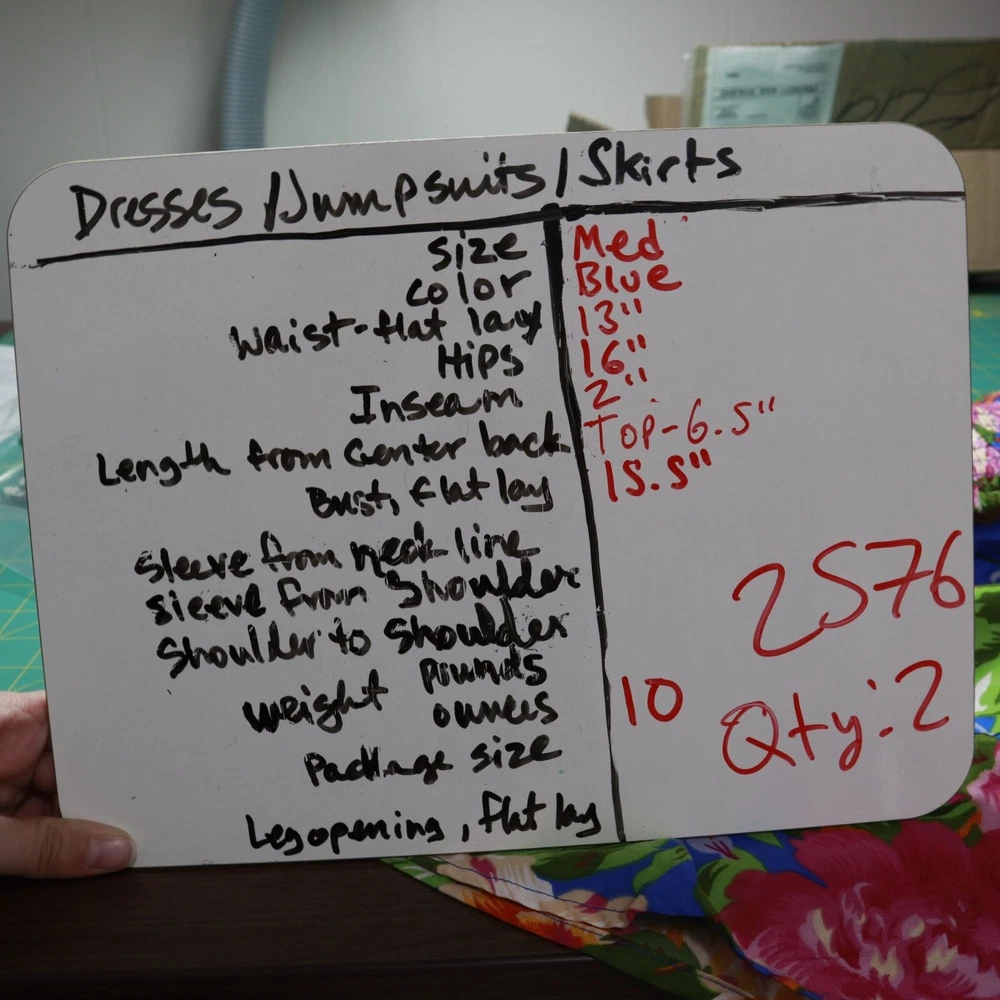 Dresses / Jumpsuits / Skirts
size Med
color Blue
Waist-flat lay 13"
Hips 16"
Inseam 2"
Length from Center back Top-6.5"
Bust, flat lay 15.5"
sleeve from neck line
sleeve from Shoulder
Shoulder to Shoulder
2576
pounds
weight ounces 10
Qty: 2
Package size
Leg opening, flat lay